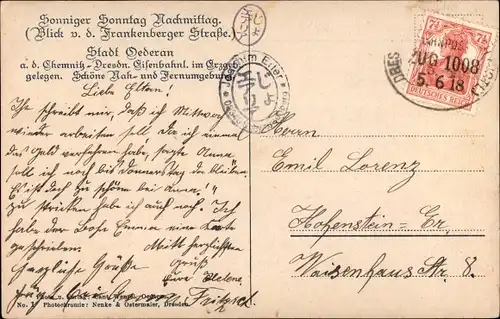 Sonniger Sonntag Nachmittag.
(Blick v. d. Frankenberger Straße.)
Stadt Oederan
a. d. Chemnitz-Dresdn. Eisenbahnl. im Erzgeb.
gelegen. Schöne Nah- und Fernumgebung
Liebe Eltern!
Ihr schreibt mir, daß ich Mittwoch
wieder arbeiten soll. Da ich einmal
das Geld verfahren habe, sagte Anna
ich soll noch bis Donnerstag da bleiben.
Es ist doch zu schön bei Anna!
Zu stricken habe ich auch noch. Ich
habe der Emma eine Karte
geschrieben. Mit herzlichsten
Gruß
Eure Helene
Herzliche Grüße
No. 1 Photochromie: Nenke & Ostermaier, Dresden.
Joachim Euler
7½ 7½
BAHNPOST
ZUG 1008
5.6.18
DEUTSCHES REICH
DRES
Herrn
Emil Lorenz
Hohenstein-Er.
Waisenhaus Str. 8.